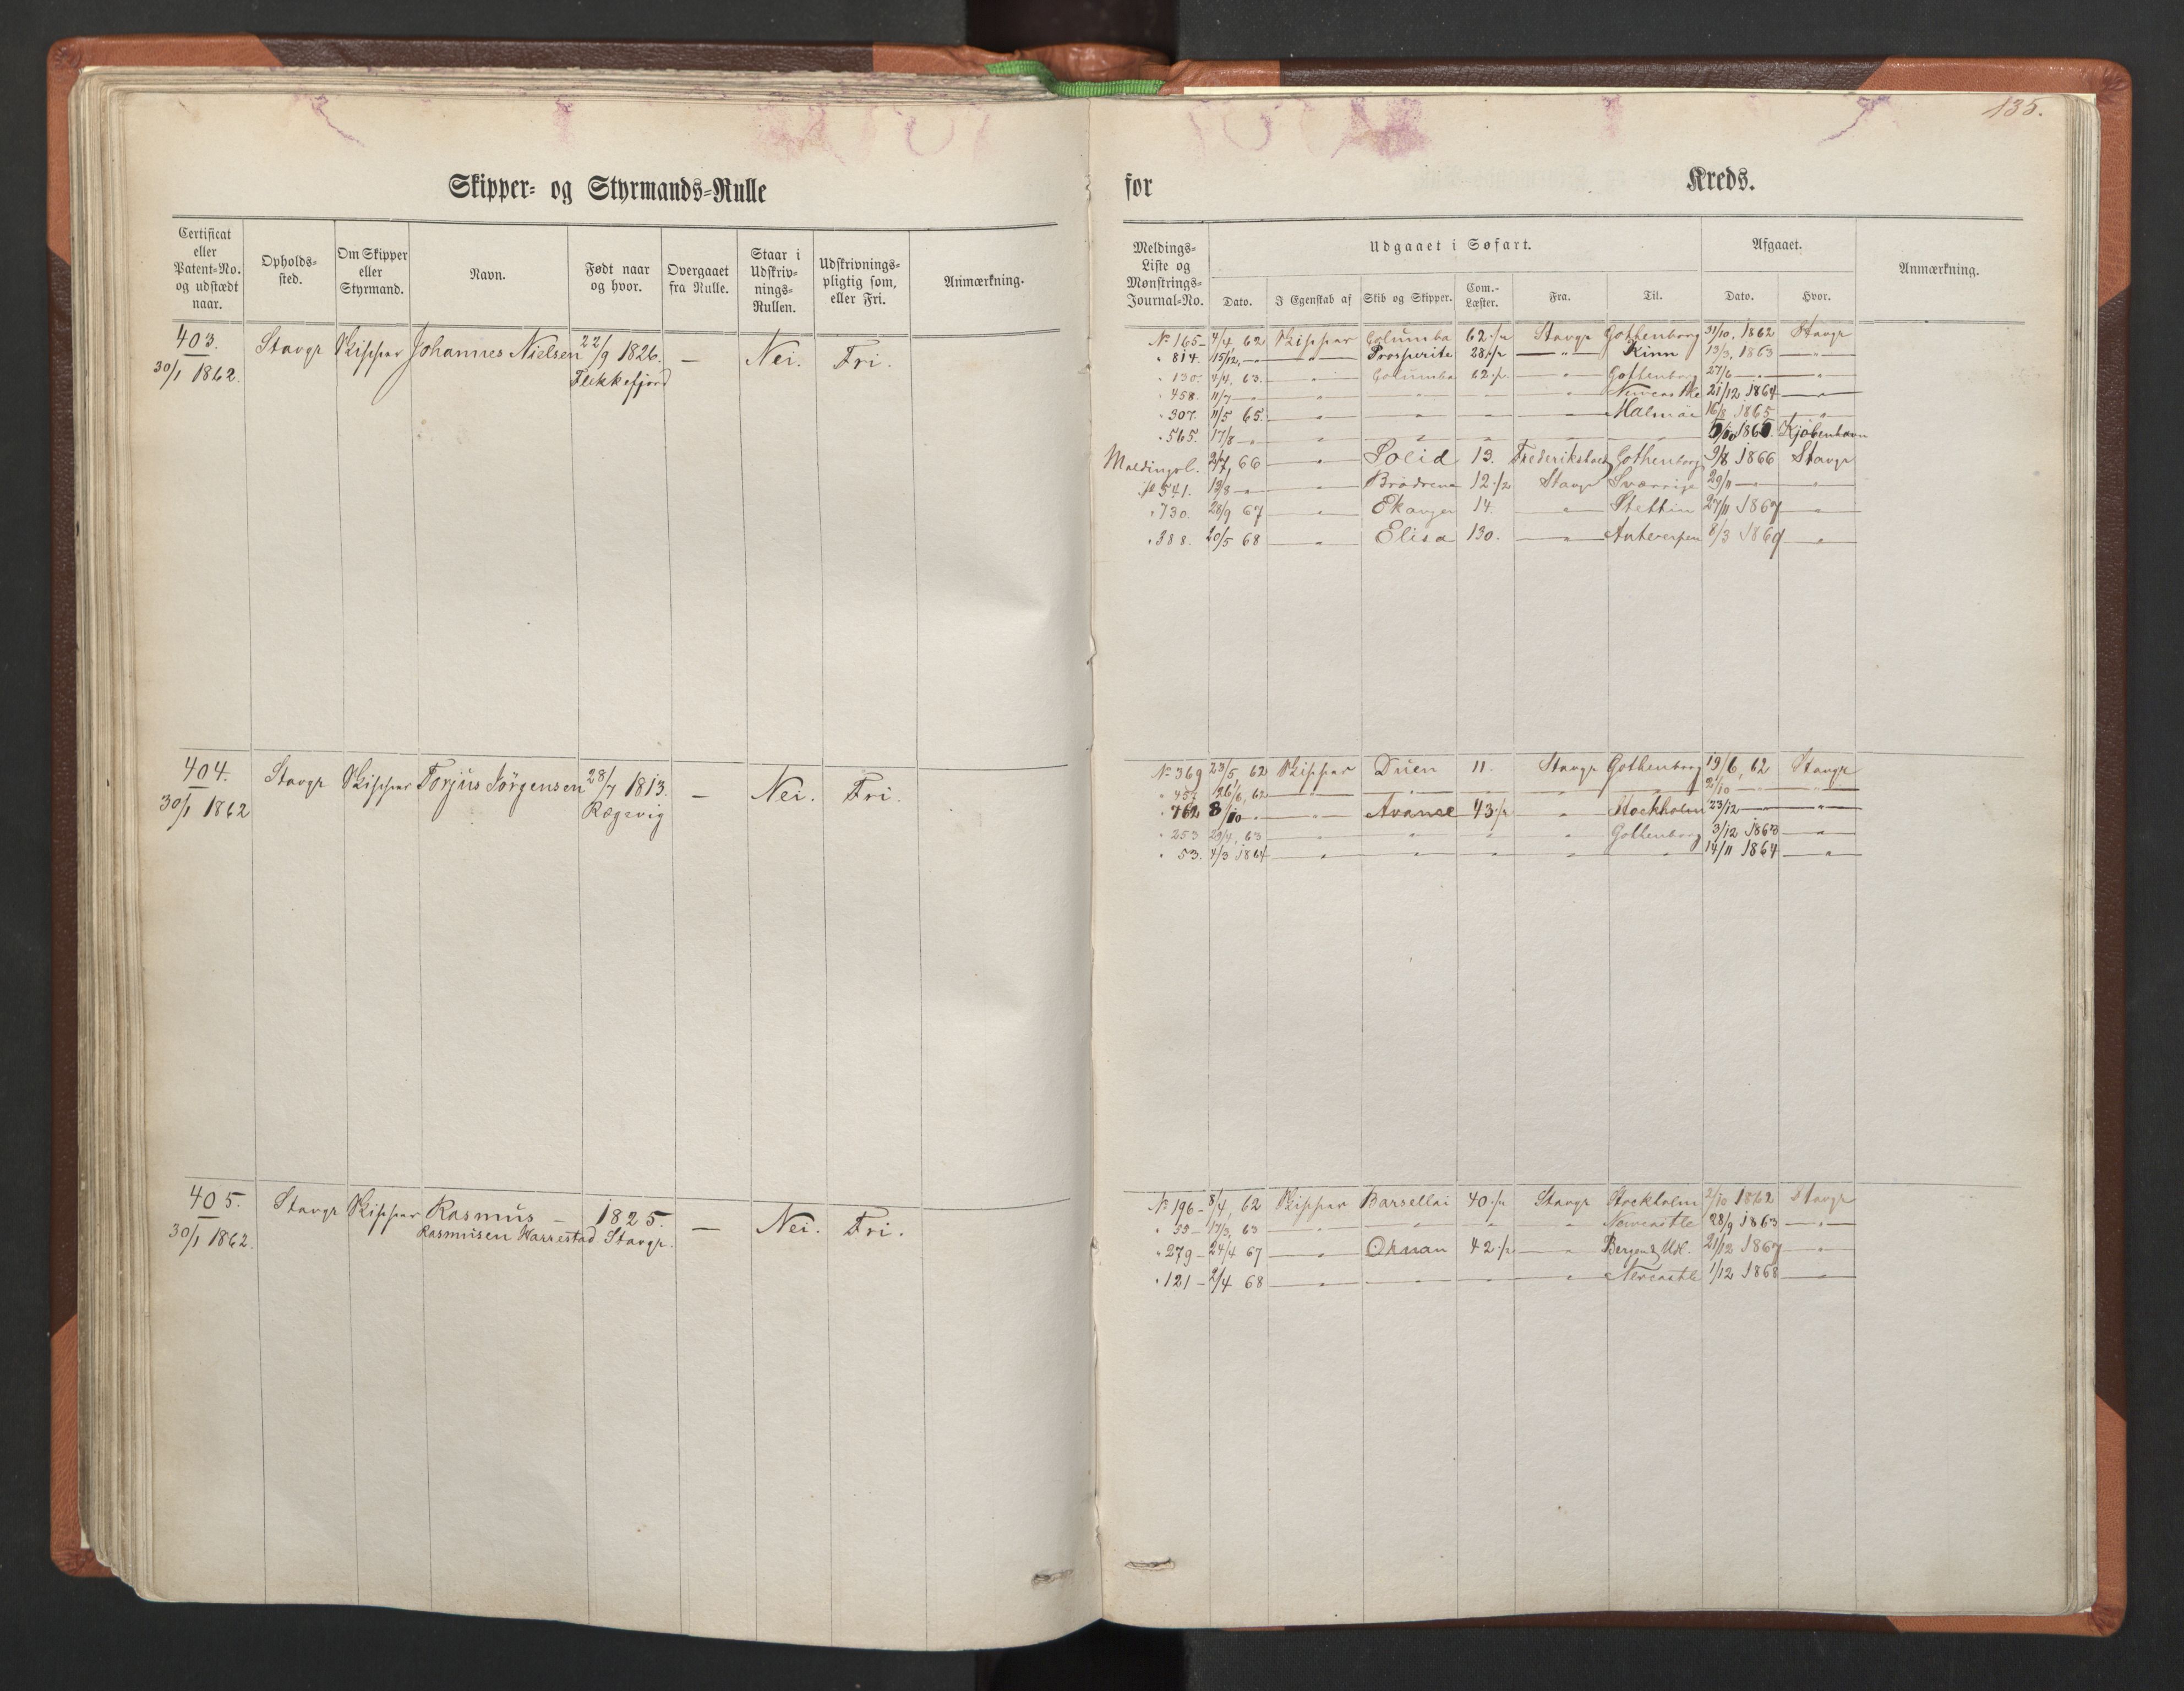 135.
Skipper- og Styrmands-Rulle
Certificat eller Patent-No. og udstædt naar.
Opholds-sted.
Om Skipper eller Styrmand.
Navn.
Født naar og hvor.
Overgaaet fra Rulle.
Staar i Udskriv-nings-Rullen.
Udskrivnings-pligtig som, eller Fri.
Anmærkning.
403. Stavgr Skipper Johannes Nielsen 22/9 1826. — Nei. Fri.
30/1 1862. Flekkefjord
404. Stavgr Skipper Torjus Jörgensen 28/7 1813. — Nei. Fri.
30/1 1862 Rægevig
405. Stavgr Skipper Rasmus — 1825. — Nei. Fri.
30/1 1862. Rasmusen Harrestad Stavgr.
for Kreds.
Meldings-Liste og Mønstrings-Journal-No.
Udgaaet i Søfart.
Dato.
I Egenskab af
Skib og Skipper.
Com.-Læster.
Fra.
Til.
Afgaaet.
Dato.
Hvor.
Anmærkning.
No 165 - 4/4 62 Skipper Columba 62 1/2 Stavgr Gothenborg 31/10. 1862 Stavgr
" 814. 15/12, — " — " — Prosperite 28 1/2 — " — Kinn 13/3. 1863 — " —
" 130. 4/4. 63. — " — Columba 62 1/2 — " — Gothenborg 27/6 — " — " —
" 458. 11/7 — " — " — " — " — " — 21/12 1864 — " —
" 307. 11/5 65. — " — " — " — " — Malmøe 16/8 1865 — " —
" 565. 17/8 — " — " — " — " — " — " — Kjøbenhavn
Meldingsl. 2/7, 66 — " — Solid 13. Frederikshald Gothenborg 9/8 1866 Stavgr
No 541. 13/8 — " — " — Brødrene 12 1/2 Stavgr Sværrige 29/11 — " — " —
" 730. 28/9 67 — " — 14. — " — Stettin 27/11 1867 — " —
" 388. 20/5 68 — " — Elisa 130. — " — Antverpen 8/3 1869 — " —
No 369 23/5, 62 Skipper Duen 11. Stavgr Gothenborg 19/6, 62 Stavgr
" 457. 26/6, 62 — " — " — " — " — " — 2/10 — " — " —
" 762 8/10 — " — " — Avance 43 1/2 — " — Stockholm 23/12 — " — " —
" 253 29/4, 63 — " — " — " — " — Gothenborg 3/12 1863 — " —
" 53. 4/3 1864 — " — " — " — " — " — 14/11 1864 — " —
No 196 - 8/4, 62 Skipper Barsellai 40 1/2 Stavgr Stockholm 2/10 1862 Stavgr
" 55 - 17/3, 63 — " — " — " — " — Newcastle 28/9 1863 — " —
" 279 - 24/4 67 — " — 42 1/2 — " — Bergen & Udl. 21/12 1867 — " —
" 121 - 2/4 68 — " — " — " — " — Newcastle 1/12 1868 — " —